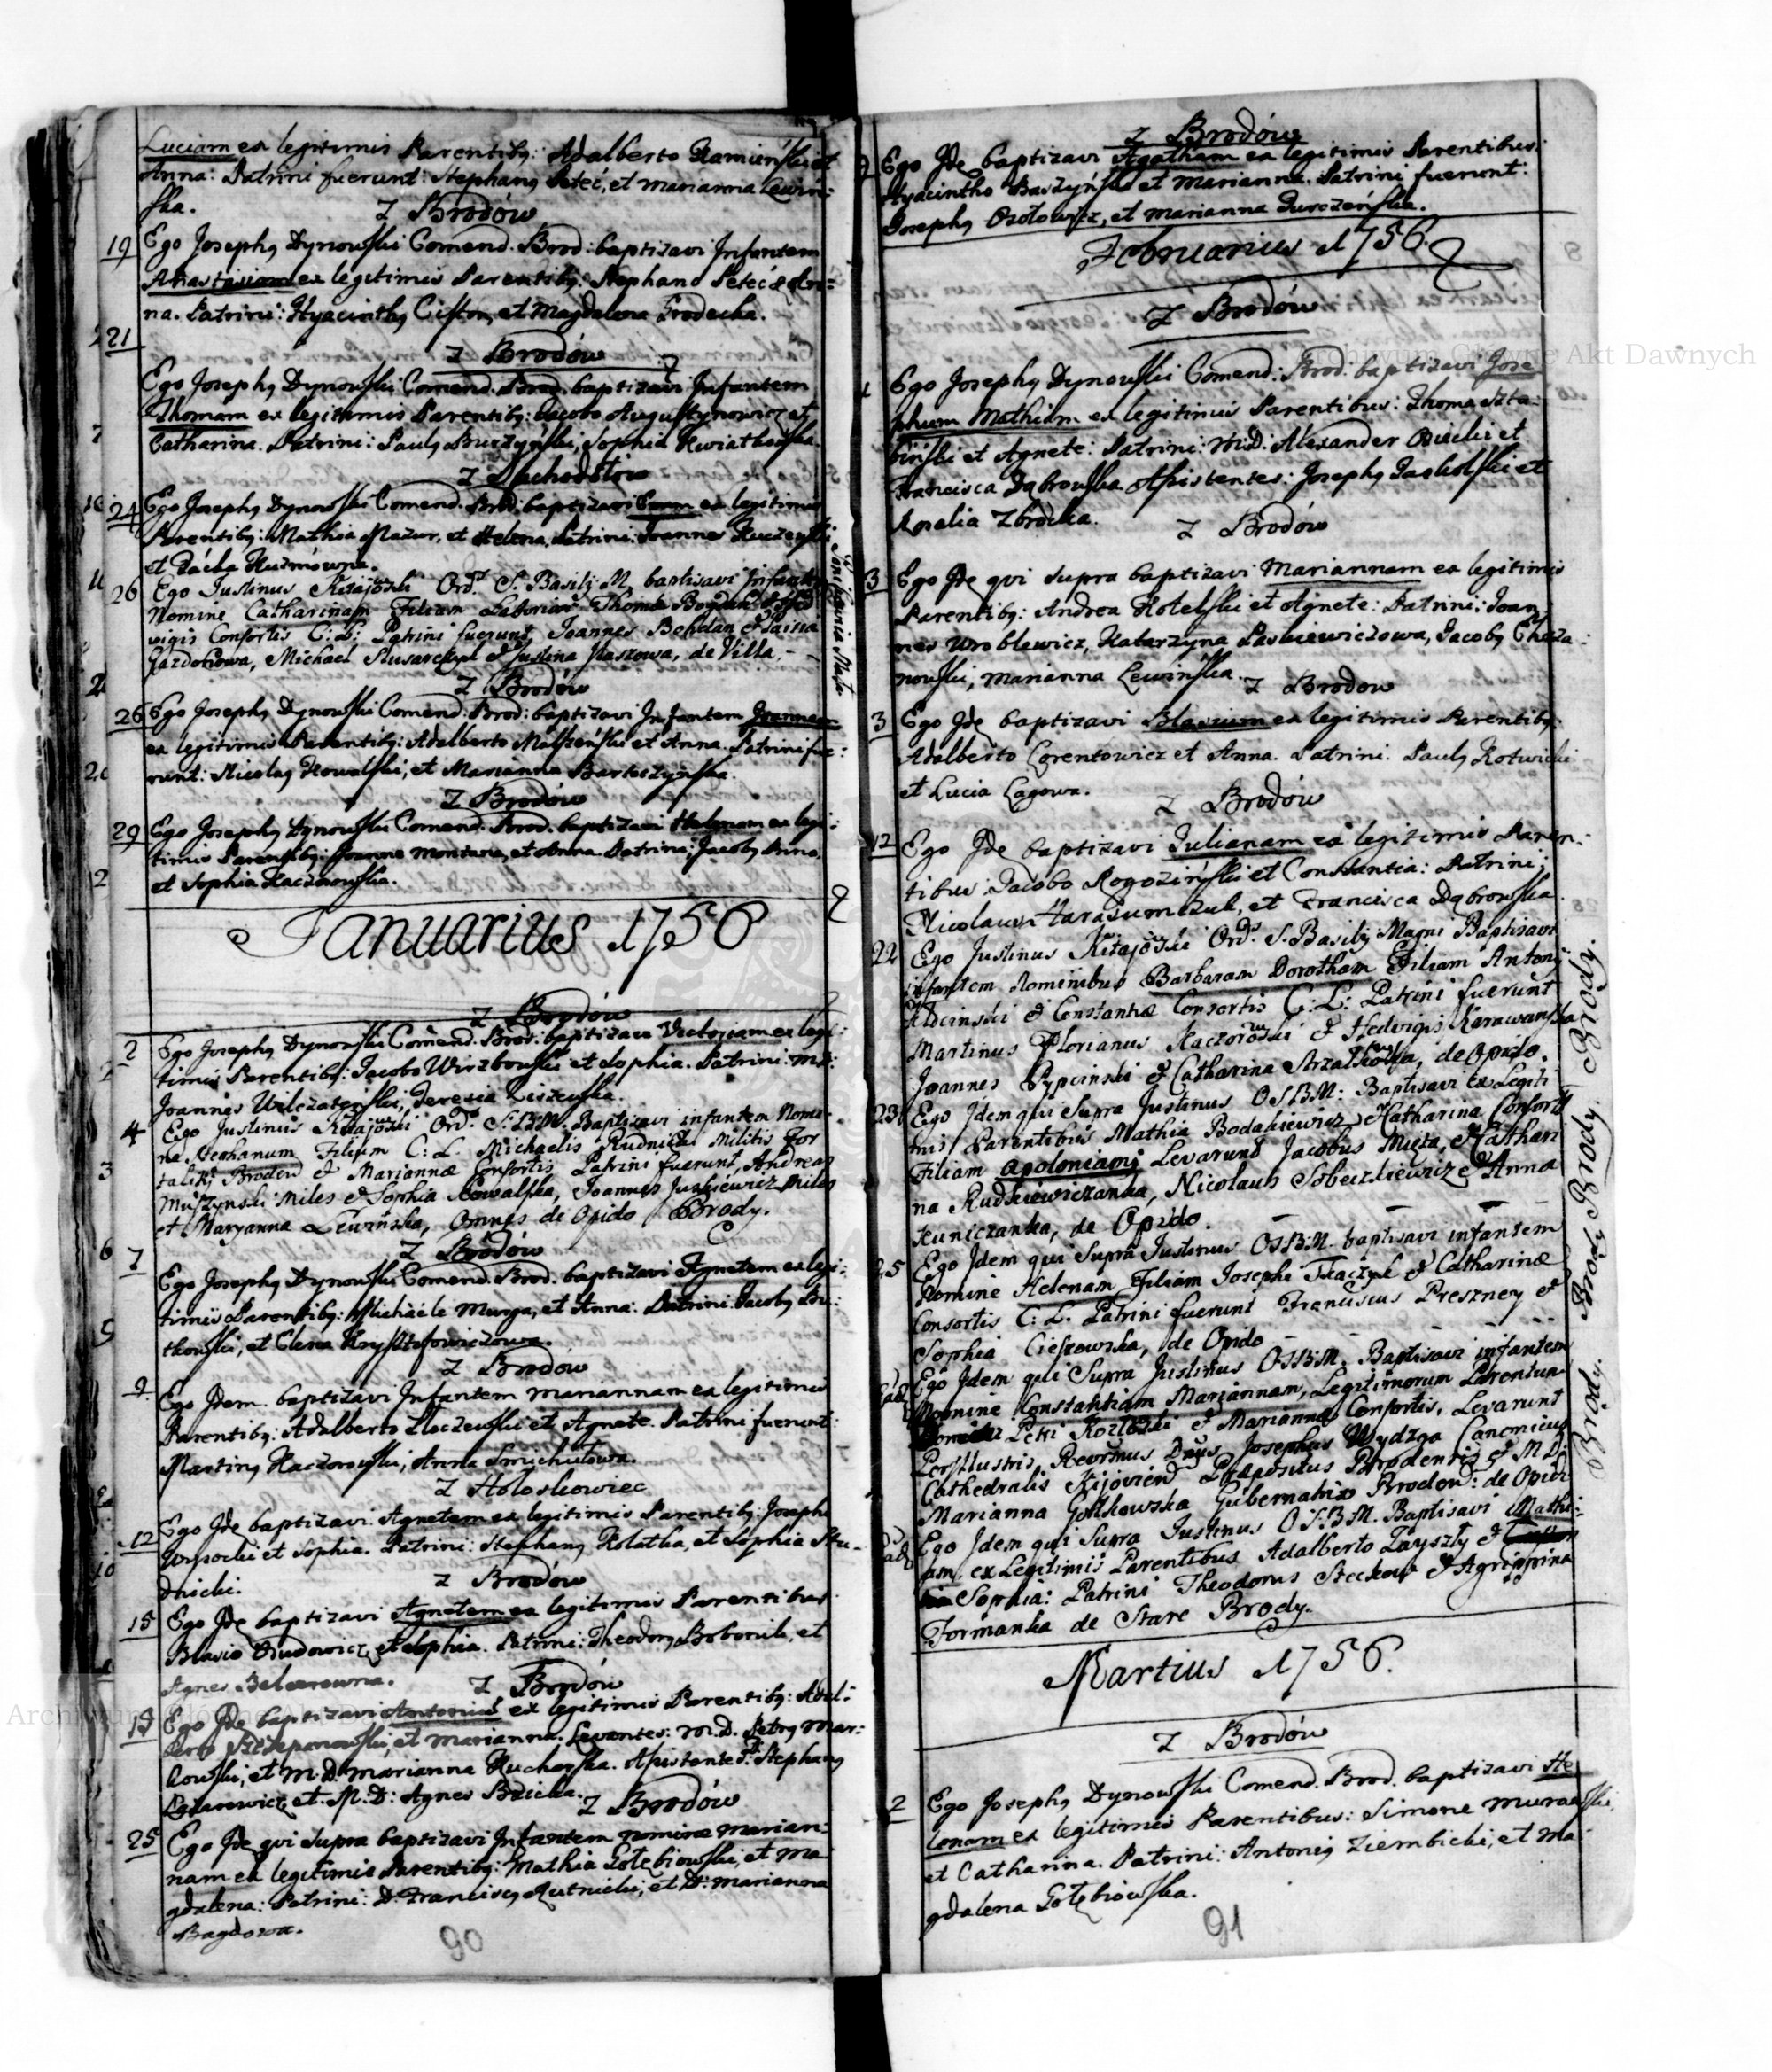 Luciam ex legitimis Parentibg: Adalberto Kamieński et
Anna: Patrini fuerunt: Stephang Peteć, et Marianna Lewin:
ska.
Z Brodów
19 Ego Josephg Dynowski Comend. Brod: baptizavi Infantem
Anastasiam ex legitimis Parentibg: Stephano Peteć & An=
na. Patrini: Hyacinthg Cison, et Magdalena Frodecka.
21
Z Brodów
Ego Josephg Dynowski Comend. Brod. baptizavi Infantem
Thomam ex legitimis Parentibg: Jacobo Augustynowicz et
Catharina. Patrini: Paulg Burzyński, Sophia Kwiatkowska.
Z
24 Ego Josephg Dynowski Comend. Brod. baptizavi Evam ex legitimis
Parentibg: Mathia Mazur, et Helena, Patrini: Joannes
et
26 Ego Justinus Kitajowski Ord. S. Basilj M. baptisavi Infantem
Nomine Catharinam Filiam Thomæ Bogdan & Hed
vigis Consortis C: L: Patrini fuerunt, Joannes Bohdan &
Gazdoniowa, Michael Slusarczyk & Justina de Villa
Z Brodów
26 Ego Josephg Dynowski Comend: Brod: baptizavi Infantem Joannem
ex legitimis Parentibg: Adalberto et Anna. Patrini fue:
runt: Nicolag Kowalski, et Marianna Bartoszyńska.
Z Brodów
29 Ego Josephg Dynowski Comend. Brod. baptizavi Helenam ex legi:
timis Parentibg: Joanne Montana, et Anna. Patrini: Jacobg
et Sophia Kaczanowska.
Januarius 1756
Z Brodów
2 Ego Josephg Dynowski Comend. Brod: baptizavi Victoriam ex legi:
timis Parentibg: Jacobo Wirzbowski et Sophia. Patrini: M:
Joannes Teresia Liszewska.
4 Ego Justinus Kitajowski Ord. S. B. M. Baptisavi infantem Nomi
ne Stephanum Filium C: L. Michaelis Rudnicki Militis For
talitj Broden & Mariannæ Consortis, Patrini fuerunt, Andreas
Muszynski Miles & Sophia Kowalska, Joannes Juskiewicz Miles
et Maryanna Lewinska, Omnes de Opido Brody.
Z Brodów
7 Ego Josephg Dynowski Comend. Brod. baptizavi Agnetem ex legi:
timis Parentibg: Michaele Murga, et Anna: Patrini Jacobg Bu:
tkowski, et Elena Krysztofowiczowa.
Z Brodów
9 Ego Idem. baptizavi Infantem Mariannam ex legitimis
Parentibg: Adalberto et Agnete. Patrini fuerunt:
Marting Kaczorowski, Anna Smuchutowa.
Z Hołoskowiec
12 Ego Ide baptizavi: Agnetem ex legitimis Parentibg: Josepho
Wysocki et Sophia. Patrini: Stephang Kolatka, et Sophia Stu-
dnicki.
Z Brodów
15 Ego Ide baptizavi Agnetem ex legitimis Parentibus
Blasio Dudowicz, et Sophia. Patrini: Theodorg Bobonik, et
Agnes
Z Brodów
15 Ego Ide baptizavi Antonium ex legitimis Parentibg: Adal:
berto Szczepanowski et Marianna. Levantes: M. D. Petrg Mar:
kowski, et M. D. Marianna Kucharska. Assistentes: Stephang
Lazarowicz, et M. D: Agnes Bzicka.
Z Brodów
25 Ego Ide qvi supra baptizavi Infantem nomine Marian:
nam ex legitimis Parentibg: Mathia Gołębiowski, et Ma
gdalena: Patrini: D. Franciscg Rutnicki, et D: Marianna
Bagdowa.
90
Z Brodów
Ego Ide baptizavi Agatham ex legitimis Parentibus:
Hyacintho Baszyński et Marianna. Patrini fuerunt:
Josephg Osołowicz, et Marianna Gurczeńska.
Februarius 1756.
Z Brodów
1 Ego Josephg Dynowski Comend: Brod: baptizavi Jose
phum Mathiam ex legitimis Parentibus: Thoma Szta:
biński et Agnete: Patrini: M. D: Alexander et
Francisca Dąbrowska Assistentes: Josephg et
Rosalia Zbrocka.
Z Brodów
3 Ego Ide qvi supra baptizavi Mariannam ex legitimis
Parentibg: Andrea Kotelski et Agnete: Patrini: Joan:
nes Wroblewicz, Katarzyna Paskiewiczowa, Jacobg Chrza:
nowski, Marianna Lewińska.
Z Brodow
3 Ego Ide baptizavi Blasium ex legitimis Parentibg:
Adalberto Lorentowicz et Anna. Patrini. Paulg Kotwicki
et Lucia Łagowa.
Z Brodów
12 Ego Ide baptizavi Julianam ex legitimis Paren:
tibus: Jacobo Rogoziński et Constantia: Patrini:
Nicolaus Harasumczuk, et Francisca Dąbrowska.
22 Ego Justinus Kitajowski Ord. S. Basilij Magni Baptisavi
infantem Nominibus Barbaram Dorotheam Filiam Antonj
& Constantiæ Consortis C: L: Patrini fuerunt
Martinus Florianus Kaczorowski & Hedvigis Karwanska
Joannes Pypcinski & Catharina Strzalkowska, de Opido.
23 Ego Idem qui Supra Justinus OSBM: Baptisavi Ex Legiti
mis Parentibus Mathia Bodakiewicz & Catharina Consorte
Filiam Apoloniam Levarunt Jacobus Mięta, & Cathari
na Rudkiewiczanka, Nicolaus Sobczkiewicz & Anna
Kuniczanka, de Opido.
25 Ego Idem qui Supra Justinus OSBM. baptisavi infantem
Nomine Helenam Filiam Josephi Tkaczyk & Catharinæ
Consortis C: L. Patrini fuerunt Franciscus Preszney &
Sophia Cieszowska, de Opido
Ead Ego Idem qui Supra Justinus OSBM. Baptisavi infantem
Nomine Constantiam Mariannam, Legitimorum Parentum
Petri Kozłowski & Mariannæ Consortis, Levarunt
Perillustris Reverendus Dnus Josephus Wydzga Canonicus
Cathedralis Kijovien Præpositus Brodensis & M D:
Marianna Golkowska Gubernatrix Broden: de Opido
Ead Ego Idem qui Supra Justinus OSBM. Baptisavi Mathi:
am. ex Legitimis Parentibus Adalberto Zayszly &
Sophia: Patrini Theodorus Steckow & Agrippina
Formanka de Stare Brody.
Martius 1756.
Z Brodów
2 Ego Josephg Dynowski Comend. Brod. baptizavi He
lenam ex legitimis Parentibus: Simone Murawski,
et Catharina. Patrini: Antonig Ziembicki, et Ma:
gdalena Gołębiowska.
91
Brody. Brody Brody. Brody.
Archiwum Główne Akt Dawnych